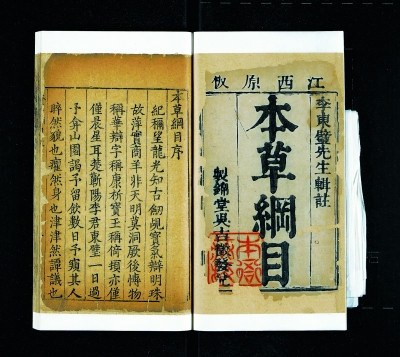 江西原板
李東璧先生輯註
本草綱目
製錦堂
本草綱目序
紀稱望龍光知古劍覘寶氣辯明珠
故萍實商羊非天明莫洞厥後博物
稱華辯字稱康析寶玉稱倚頓亦僅
僅晨星耳楚蘄陽李君東璧一日過
予弇山園謁予留飲數日予窺其人
睟然貌也癯然身也津津然譚議也